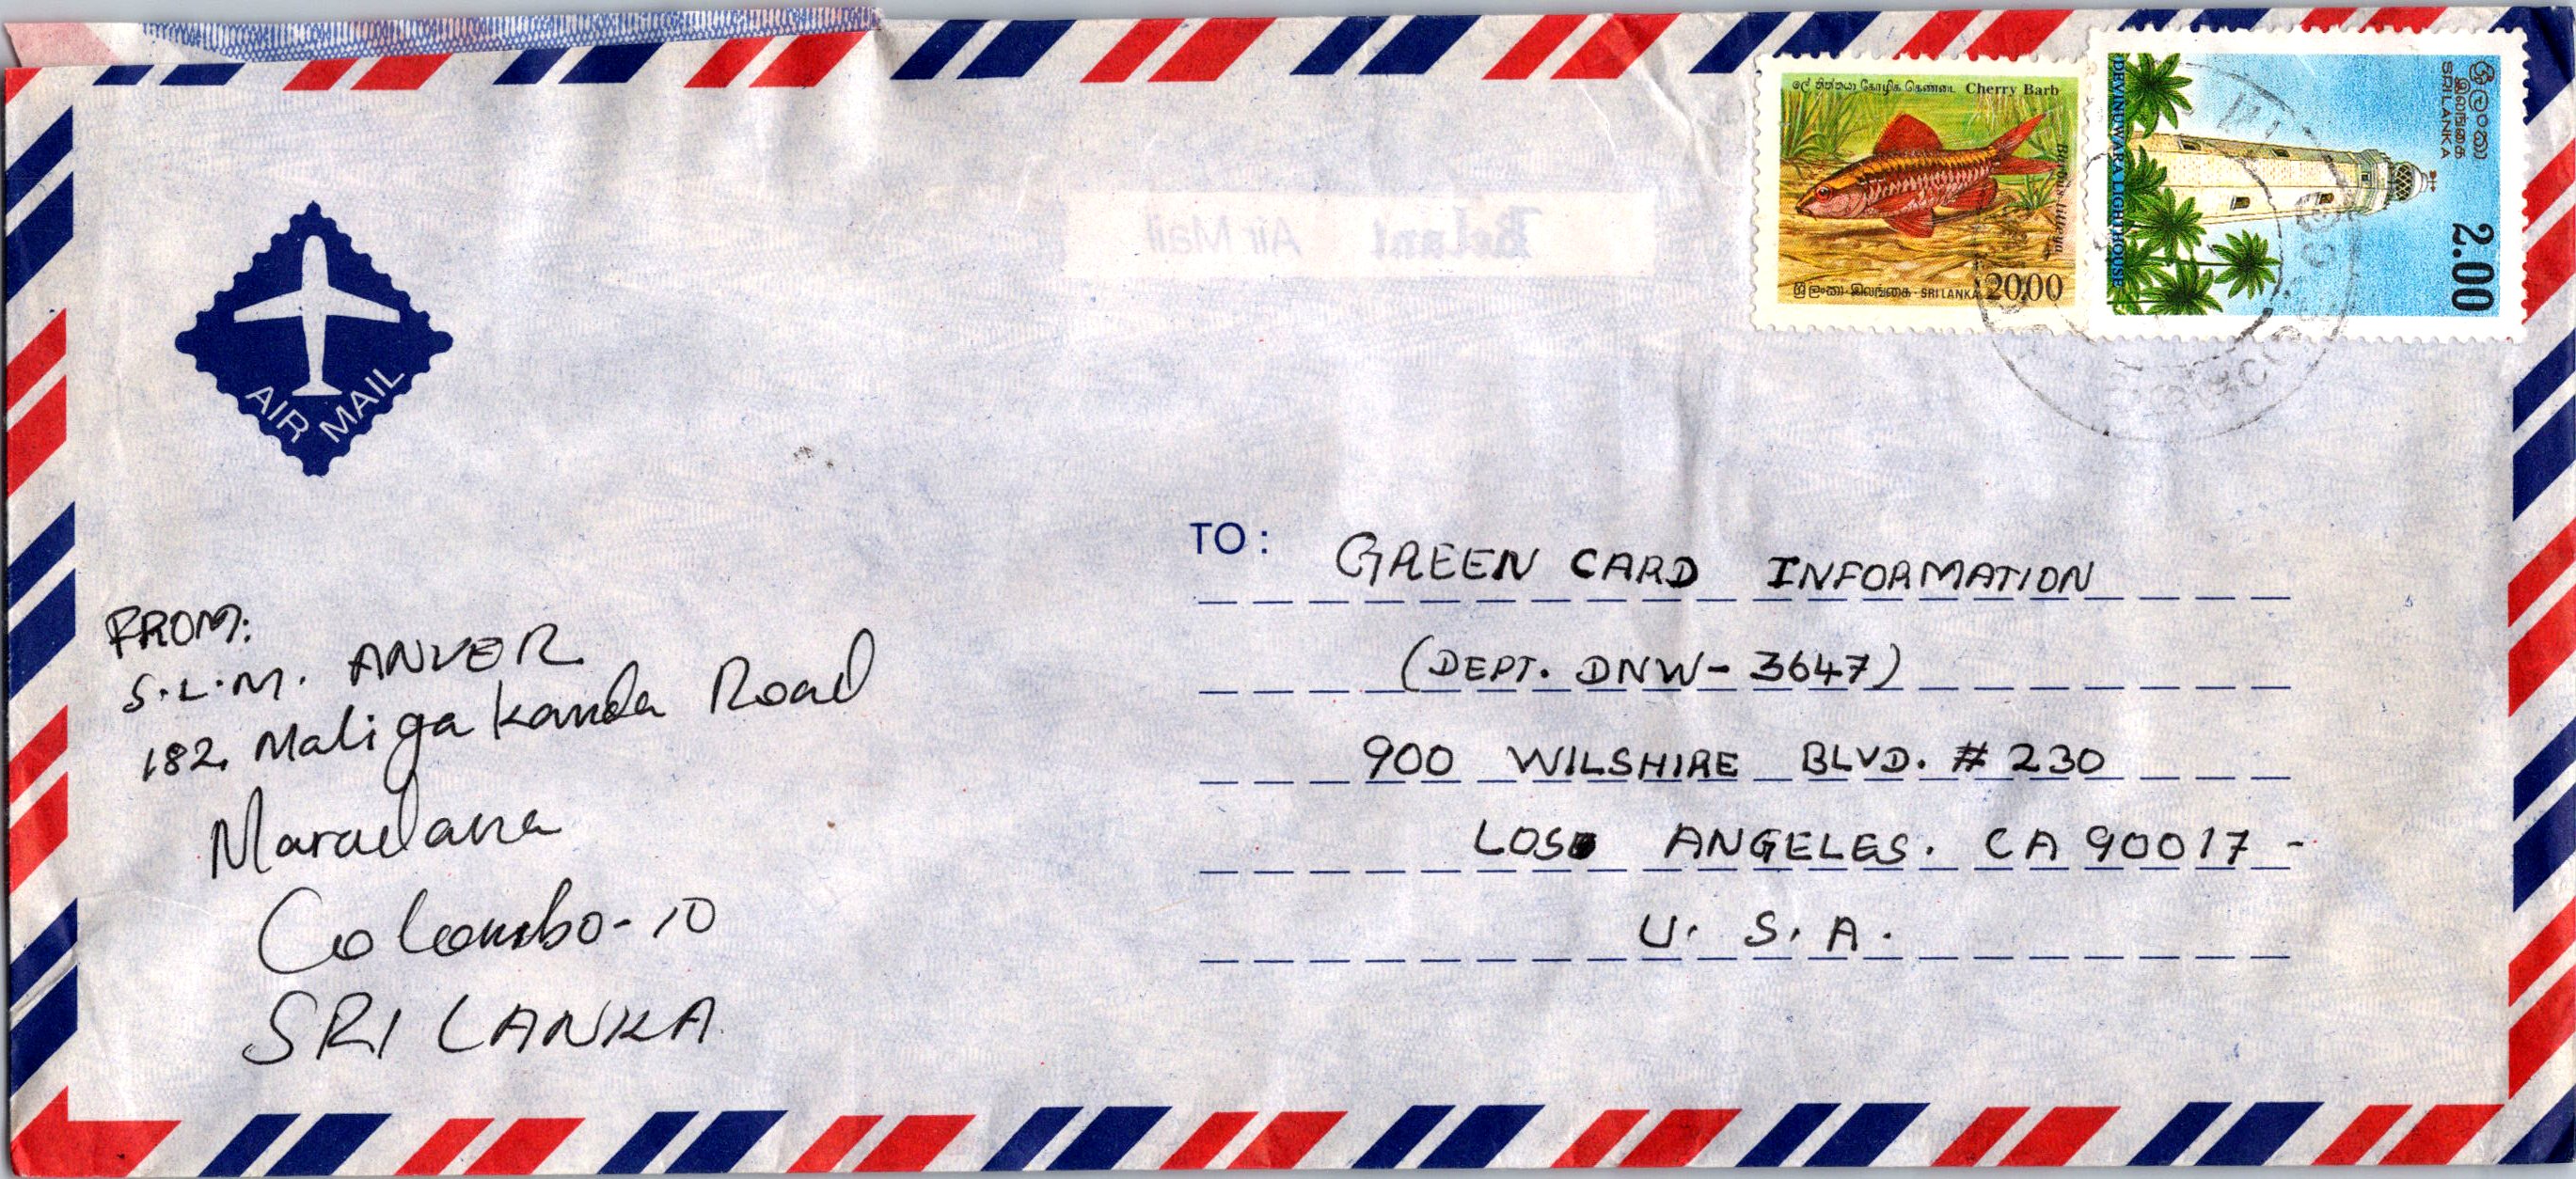 ලේ තිත්තයා கோழிக கெண்டை Cherry Barb
ශ්‍රී ලංකා இலங்கை · SRI LANKA 20.00
ශ්‍රී ලංකා
இலங்கை
SRI LANKA
2.00
DEVINUWARA LIGHTHOUSE
Air Mail
AIR MAIL
TO:
GREEN CARD INFORMATION
(DEPT. DNW-3647)
900 WILSHIRE BLVD. #230
LOS ANGELES. CA 90017-
U. S. A.
FROM:
S.L.M. ANVER
182, Maligakanda Road
Maradana
Colombo-10
SRI LANKA